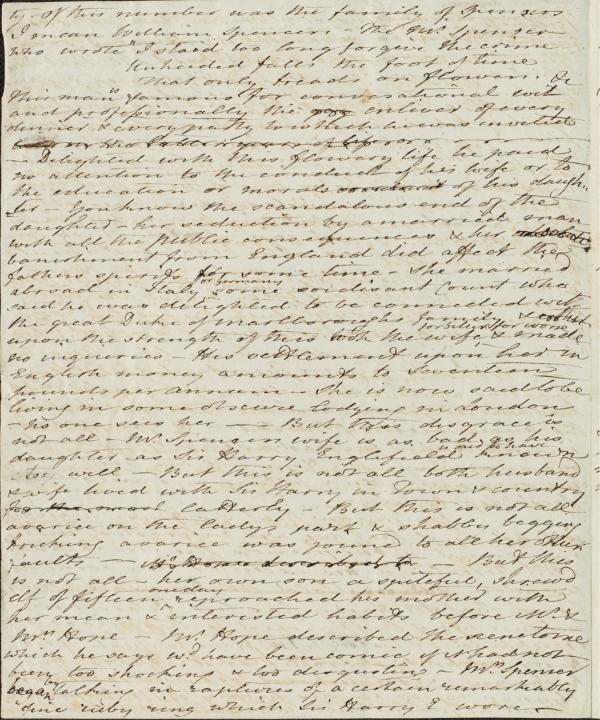 ty of this number was the family of Spencers
I mean William Spencers - The Mr. Spenser
who wrote "I staid too long forgive the crime
Unheeded falls the foot of time
That only treads on flowers. &
This man is famous for conversational wit
and professionally the enliver of every
dinner & every party to which he was invited
- Delighted with this flowery life he paid
no attention to the conduct of his wife or to
the education or morals of his daugh-
ter - You know the scandalous end of the
daughter - her seduction by a married man
with all the public consequences & her
banishment from England did affect the
fathers spirits for some time - She married
abroad in Italy or Germany some soi disant Count who
said he was delighted to be connected with
the great Duke of Marlboroughs family & 
upon the strength of this took the wife for better for worse & made
no inquiries - His settlement upon her in
English money amounts to Seventeen
pounds per annum - She is now said to be
living in some obscure lodging in London
- no one sees her - But this disgrace is
not all - Mr. Spencers wife is as bad as his
daughter as Sir Harry Englefield is said to have known
too well - But this is not all both husband
& wife lived with Sir Harry in Town & country
latterly - But this is not all
avarice on the ladys part & shabby begging
tricking avarice was joined to all her other
faults - But this
is not all - her own son a spiteful, shrewd
elf of fifteen one day reproached his mother with
her mean & interested habits before Mr. &
Mrs Hope - Mr. Hope described the scene to me
which he says wd have been comic if it had not
been too shocking & too disgusting - Mrs Spenser
began by talking in raptures of a certain remarkably
fine ruby ring which Sir Harry E wore -